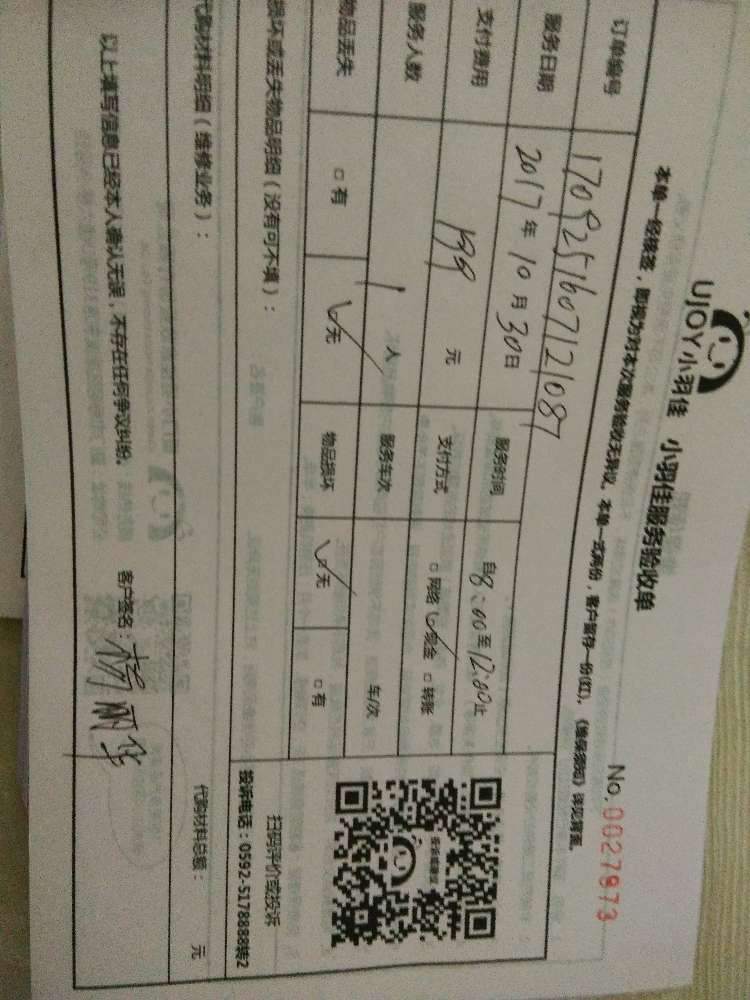 UJOY小羽佳 小羽佳服务验收单
No.0027973
本单一经核签，即视为对本次服务验收无异议。本单一式两份，客户留存一份(红)。《维保须知》详见背面。
订单编号 170925160712108
服务日期 2017年10月30日 服务时间 自8:00至12:00止
支付费用 199 元 支付方式 □网络 ☑现金 □转账
服务人数 1 人 服务车次 车/次
物品丢失 □有 ☑无 物品损坏 ☑无 □有
损坏或丢失物品明细（没有可不填）：
扫码评价或投诉
投诉电话：0592-5178888转2
代购材料明细（维修业务）：
代购材料总额： 元
以上填写信息已经本人确认无误，不存在任何争议纠纷。 客户签名：杨丽华